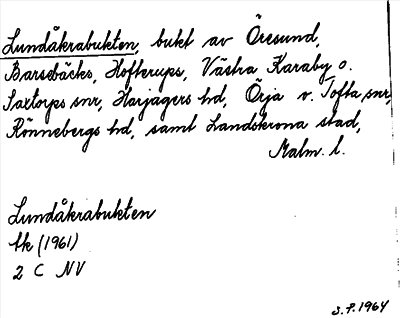 Lundåkrabukten, bukt av Öresund,
Barsebäcks, Hofterups, Västra Karaby o.
Saxtorps snr, Harjagers hd, Örja o. Tofta snr,
Rönnebergs hd, samt Landskrona stad,
Malm. l.
Lundåkrabukten
tk (1961)
2 C NV
S.P. 1964